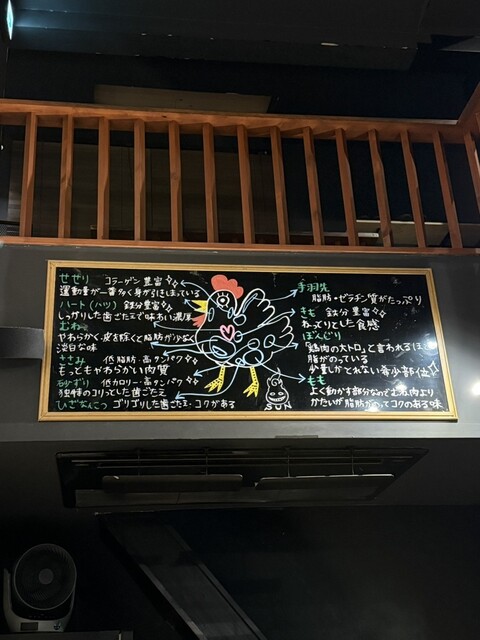 せせり コラーゲン豊富
運動量が一番多く身が引きしまっている
ハート(ハツ) 鉄分豊富
しっかりした歯ごたえで味わい濃厚
むね
やわらかく皮を除くと脂肪が少なく
淡白な味
ささみ 低脂肪・高タンパク
もっともやわらかい肉質
砂ずり 低カロリー・高タンパク
独特のコリっとした歯ごたえ
ひざなんこつ ゴリゴリした歯ごたえ コクがある
手羽先
脂肪・ゼラチン質がたっぷり
きも 鉄分豊富
ねっとりとした食感
ぼんじり
「鶏肉の大トロ」と言われるほど
脂がのっている
少量しかとれない希少部位
もも
よく動かす部分なのでむね肉より
かたいが脂肪がのってコクのある味